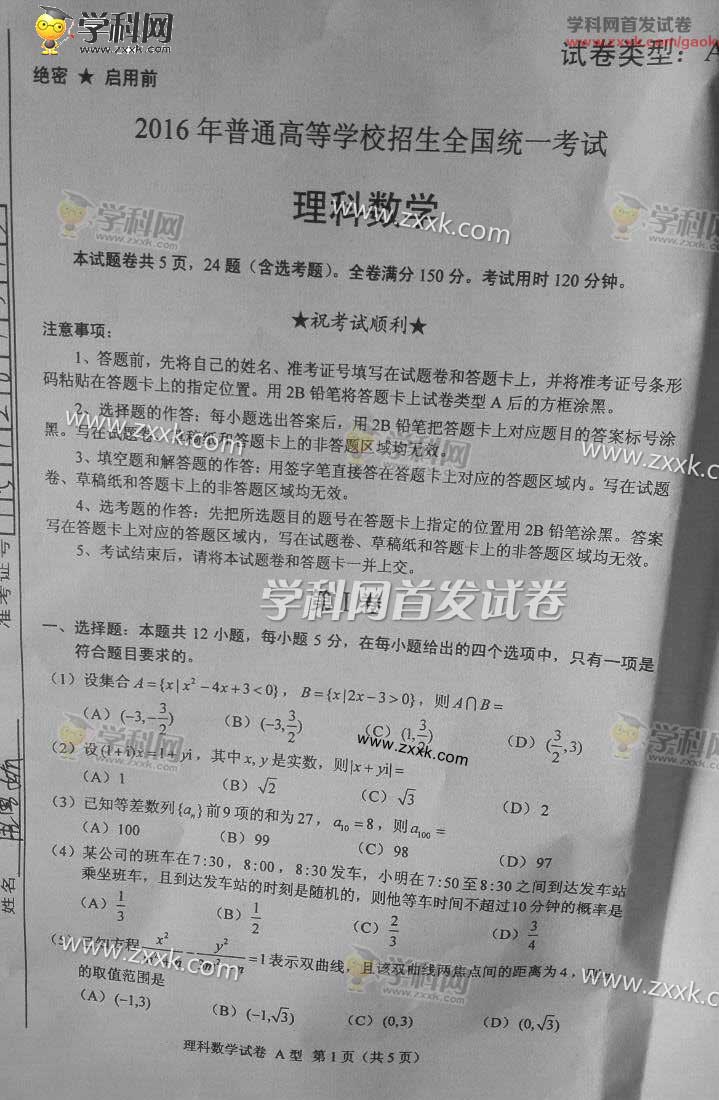 学科网
www.zxxk.com
学科网首发试卷
www.zxxk.com/gaok
试卷类型：A
绝密 ★ 启用前
2016 年普通高等学校招生全国统一考试
理科数学
本试题卷共 5 页，24 题（含选考题）。全卷满分 150 分。考试用时 120 分钟。
★祝考试顺利★
注意事项：
1、答题前，先将自己的姓名、准考证号填写在试题卷和答题卡上，并将准考证号条形
码粘贴在答题卡上的指定位置。用 2B 铅笔将答题卡上试卷类型 A 后的方框涂黑。
2、选择题的作答：每小题选出答案后，用 2B 铅笔把答题卡上对应题目的答案标号涂
黑。写在试题卷、草稿纸和答题卡上的非答题区域均无效。
3、填空题和解答题的作答：用签字笔直接答在答题卡上对应的答题区域内。写在试题
卷、草稿纸和答题卡上的非答题区域均无效。
4、选考题的作答：先把所选题目的题号在答题卡上指定的位置用 2B 铅笔涂黑。答案
写在答题卡上对应的答题区域内，写在试题卷、草稿纸和答题卡上的非答题区域均无效。
5、考试结束后，请将本试题卷和答题卡一并上交。
学科网首发试卷
第 I 卷
一、选择题：本题共 12 小题，每小题 5 分，在每小题给出的四个选项中，只有一项是
符合题目要求的。
（1）设集合 A={x|x²−4x+3<0}，B={x|2x−3>0}，则 A∩B=
（A）(−3,−3/2) （B）(−3,3/2) （C）(1,3/2) （D）(3/2,3)
（2）设(1+i)x=1+yi，其中 x,y 是实数，则|x+yi|=
（A）1 （B）√2 （C）√3 （D）2
（3）已知等差数列{aₙ}前 9 项的和为 27，a₁₀=8，则 a₁₀₀=
（A）100 （B）99 （C）98 （D）97
（4）某公司的班车在 7:30，8:00，8:30 发车，小明在 7:50 至 8:30 之间到达发车站
乘坐班车，且到达发车站的时刻是随机的，则他等车时间不超过 10 分钟的概率是
（A）1/3 （B）1/2 （C）2/3 （D）3/4
（5）已知方程 x² − y² =1 表示双曲线，且该双曲线两焦点间的距离为 4，则
的取值范围是
（A）(−1,3) （B）(−1,√3) （C）(0,3) （D）(0,√3)
理科数学试卷 A 型 第 1 页（共 5 页）
准考证号
姓名